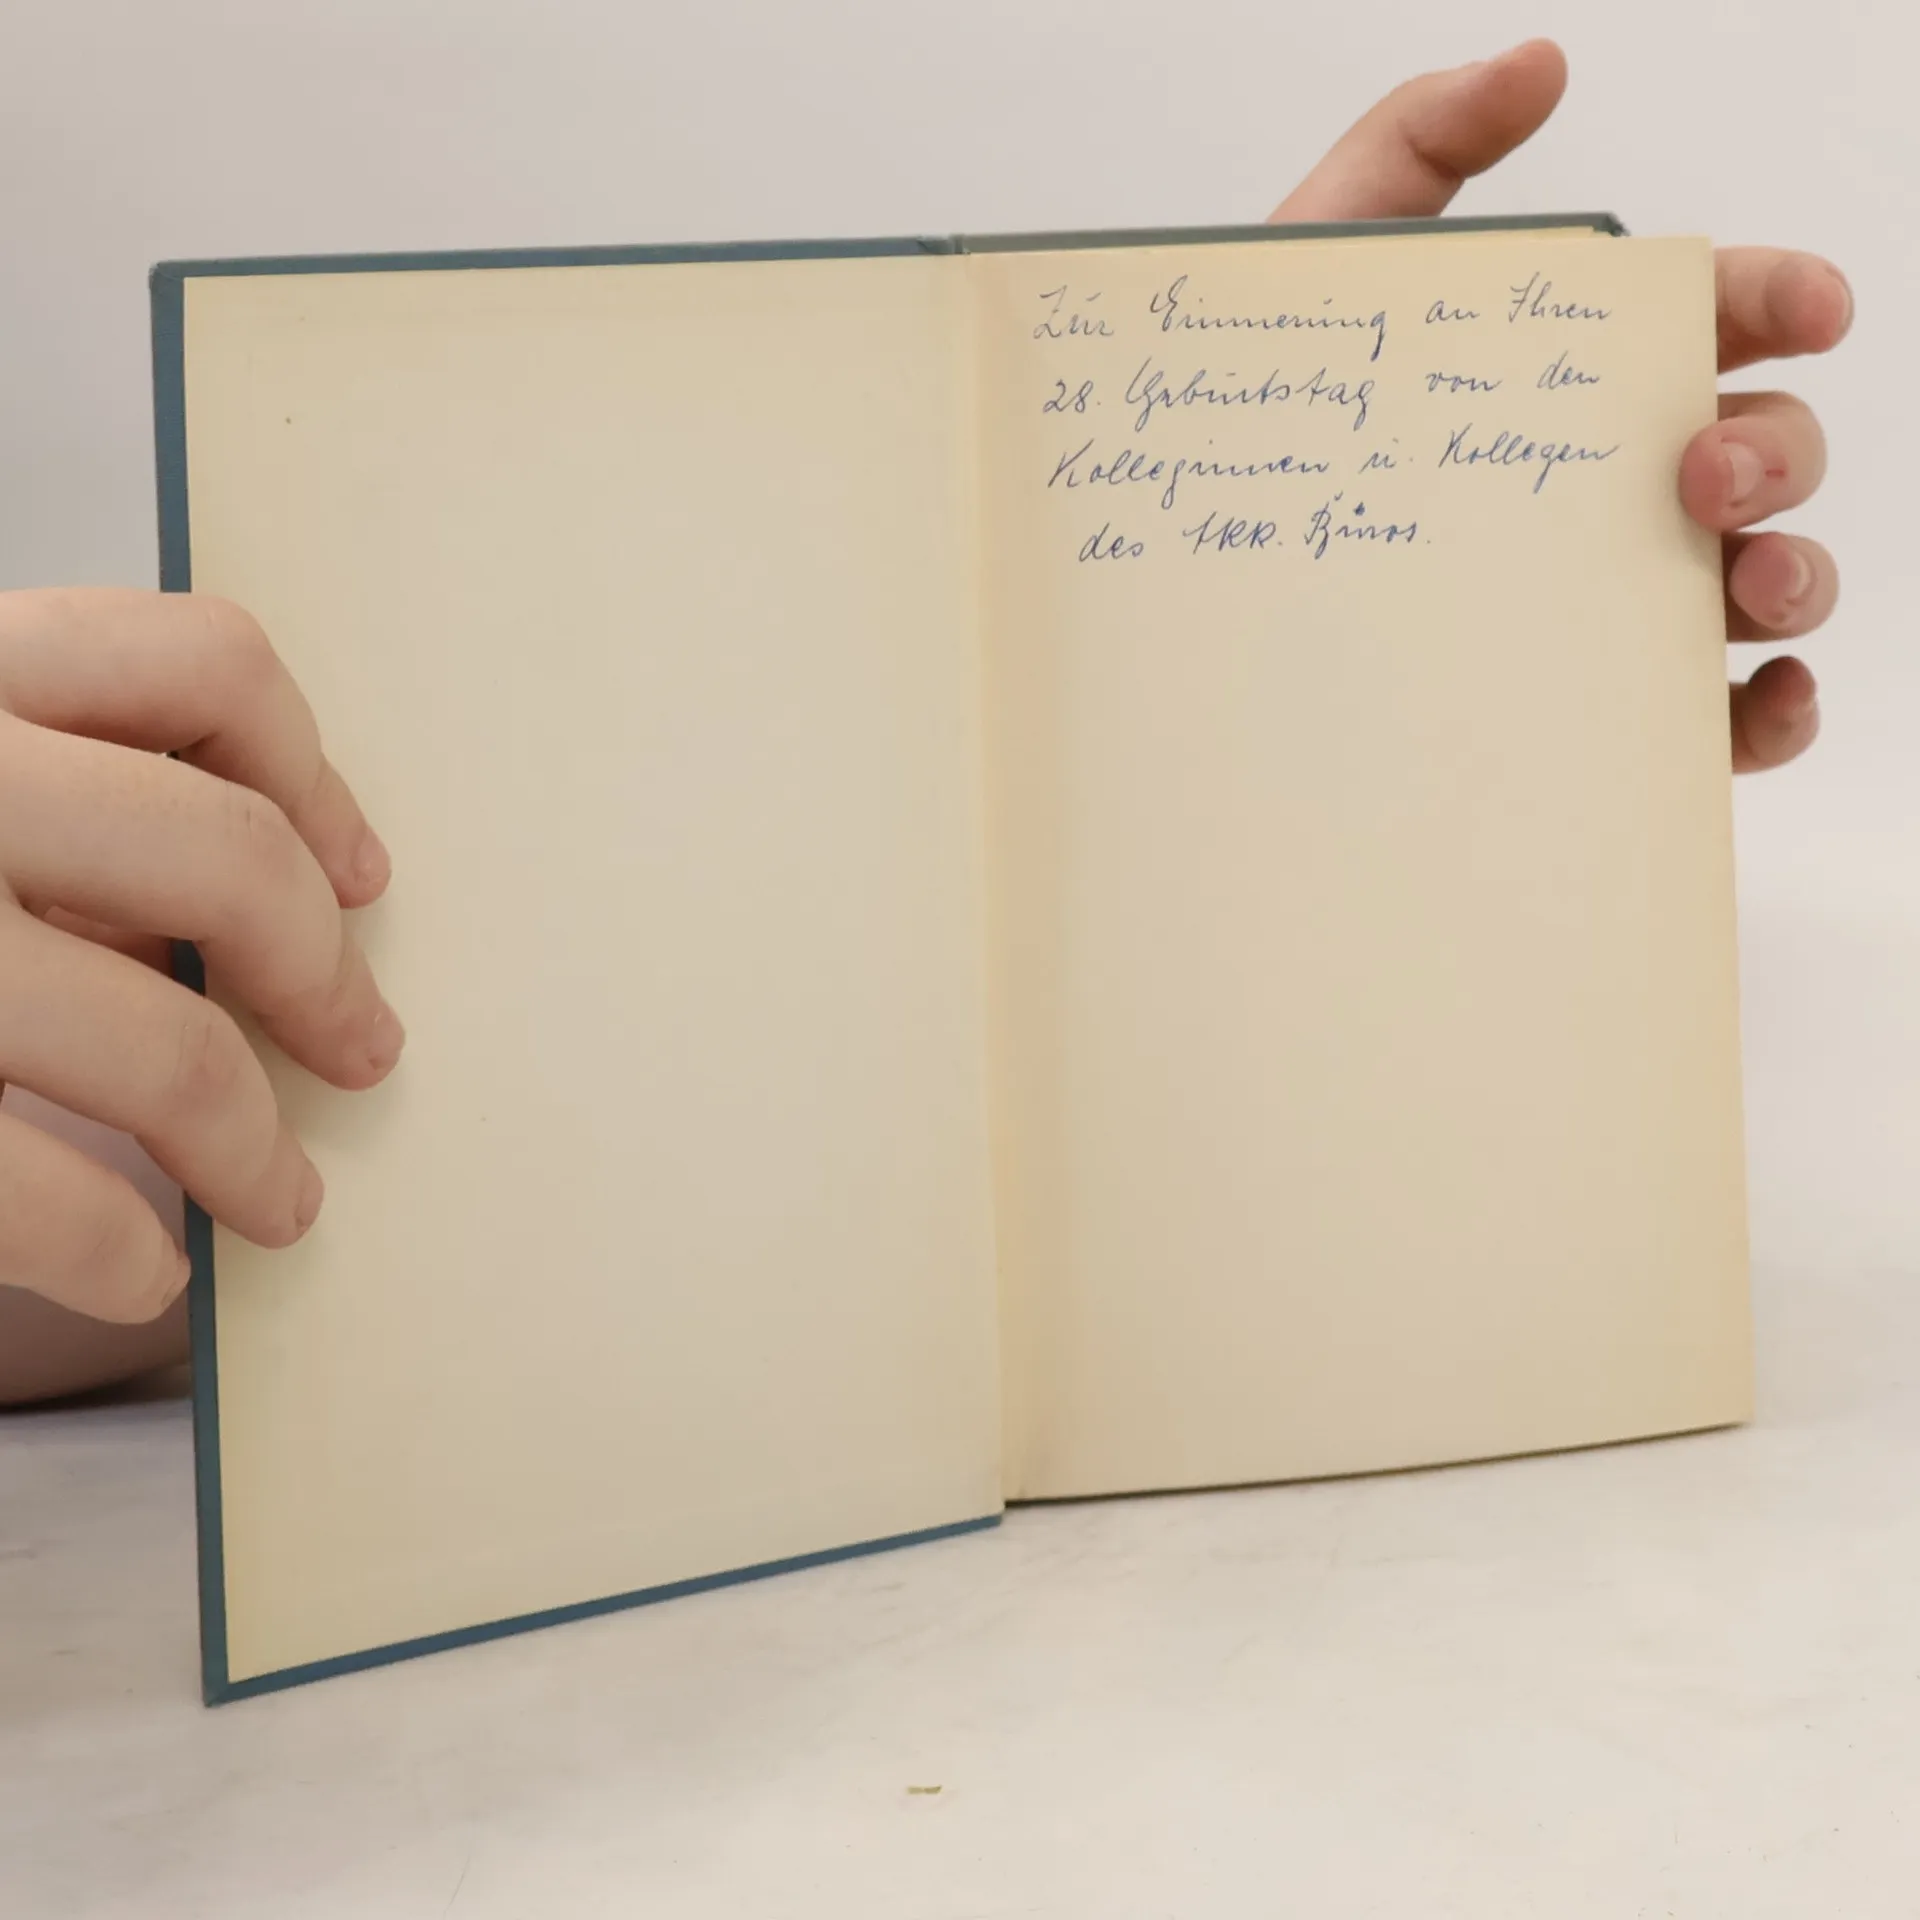 Zur Erinnerung an Ihren
28. Geburtstag von den
Kolleginnen u. Kollegen
des Akk. Büros.